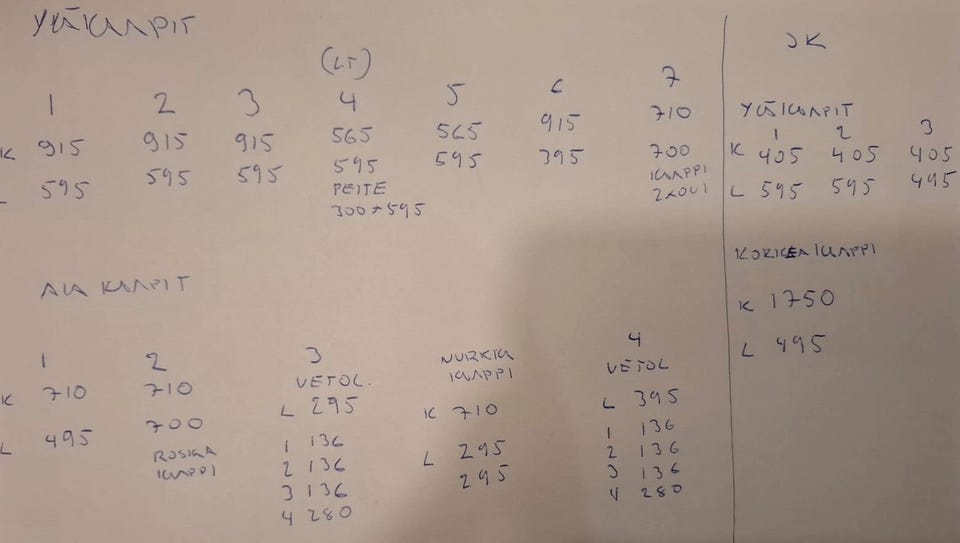 YLÄKAAPIT
(LT)
1 2 3 4 5 6 7
K 915 915 915 565 565 915 710
L 595 595 595 595 595 395 700
PEITE
300 × 595
KAAPPI
2 × OVI
JK
YLÄKAAPIT
1 2 3
K 405 405 405
L 595 595 495
KORKEA KAAPPI
K 1750
L 495
ALA KAAPIT
1 2 3 NURKKA KAAPPI 4
VETOL. VETOL
K 710 710 L 295 K 710 L 395
L 495 700 L 295
295
ROSKA
KAAPPI
1 136
2 136
3 136
4 280
1 136
2 136
3 136
4 280